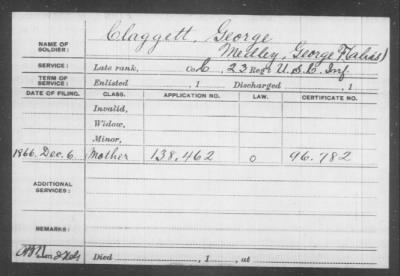 Claggett, George
NAME OF SOLDIER: Medley, George (alias)
SERVICE: Late rank, Co. C, 23 Reg't U.S.C. Inf.
TERM OF SERVICE: Enlisted , 1 Discharged , 1
DATE OF FILING. CLASS. APPLICATION NO. LAW. CERTIFICATE NO.
Invalid,
Widow,
Minor,
1866. Dec. 6. Mother 138.462 0 96.782
ADDITIONAL SERVICES:
REMARKS:
Died , 1 , at